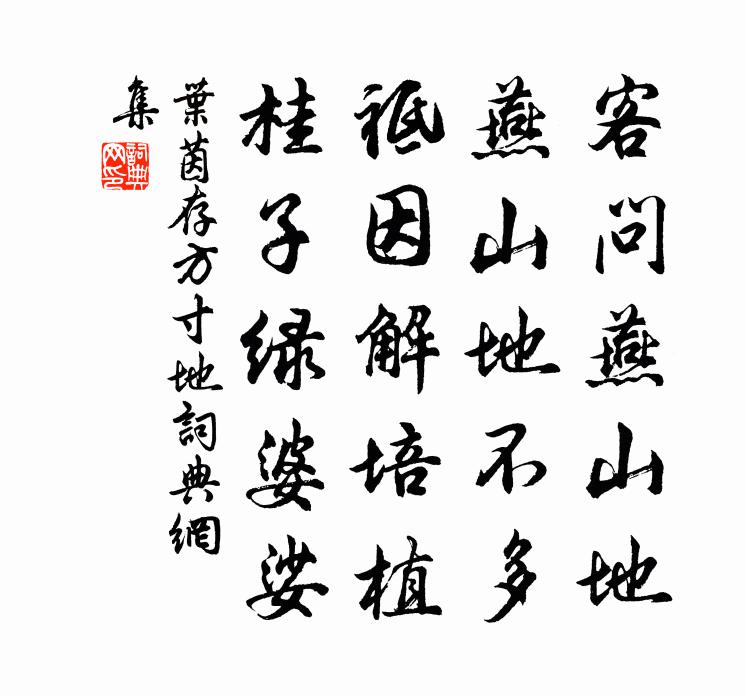 客問燕山地
燕山地不多
祗因解培植
桂子緑婆娑
葉茵存方寸地詞典網
集
詞典
网印